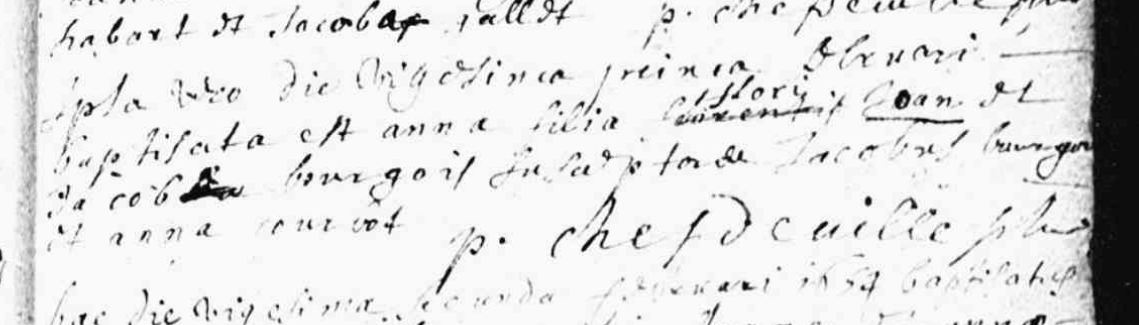 habart et Jacobae p. chefdeuille
Ipsa vero die vigesima prima februari
baptisata est anna filia florij Joan et
Jacoba bourgois susceptores Jacobus bourgois
et anna
p. chefdeuille
hac die vigesima secunda februari 1654 baptisatus